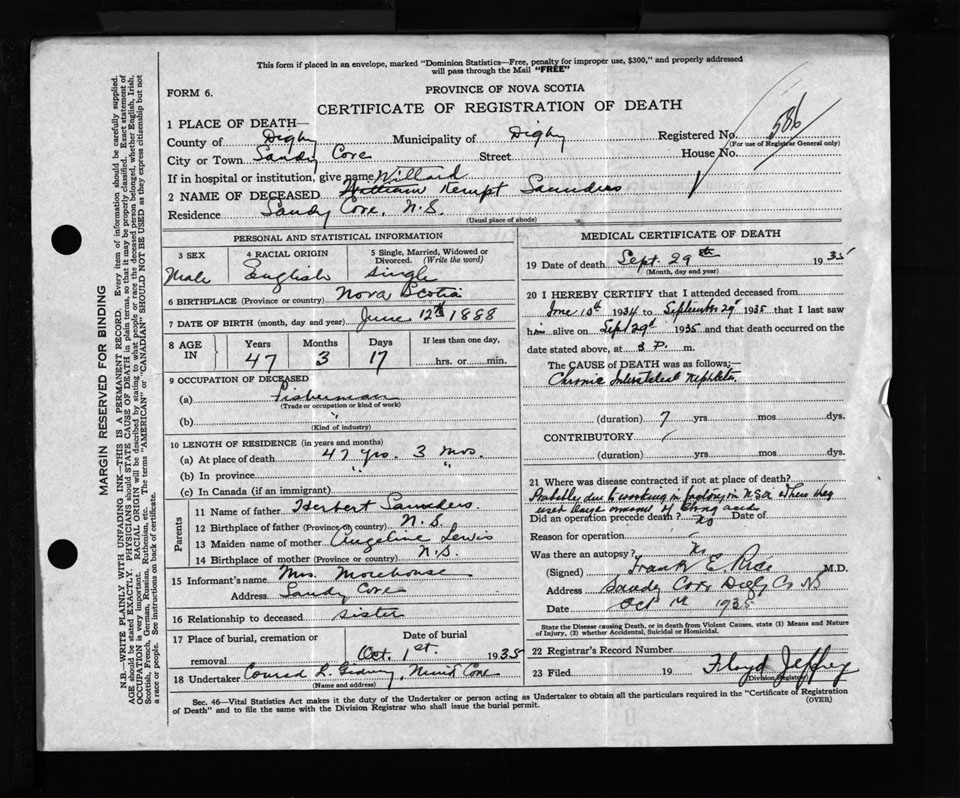 This form if placed in an envelope, marked "Dominion Statistics—Free, penalty for improper use, $300," and properly addressed
will pass through the Mail "FREE"
FORM 6.
PROVINCE OF NOVA SCOTIA
CERTIFICATE OF REGISTRATION OF DEATH
1 PLACE OF DEATH—
County of Digby Municipality of Digby Registered No. 586
(For use of Registrar General only)
City or Town Sandy Cove Street House No.
If in hospital or institution, give name Willard
2 NAME OF DECEASED William Kempt Saunders
Residence Sandy Cove, N.S.
(Usual place of abode)
PERSONAL AND STATISTICAL INFORMATION
3 SEX 4 RACIAL ORIGIN 5 Single, Married, Widowed or
Divorced. (Write the word)
Male English Single
6 BIRTHPLACE (Province or country) Nova Scotia
7 DATE OF BIRTH (month, day and year) June 12th 1888
8 AGE IN Years Months Days If less than one day,
47 3 17 hrs. or min.
9 OCCUPATION OF DECEASED
(a) Fisherman
(Trade or occupation or kind of work)
(b) "
(Kind of industry)
10 LENGTH OF RESIDENCE (in years and months)
(a) At place of death 47 yrs. 3 Mos.
(b) In province " "
(c) In Canada (if an immigrant)
Parents
11 Name of father Herbert Saunders
12 Birthplace of father (Province or country) N.S.
13 Maiden name of mother Angeline Lewis
14 Birthplace of mother (Province or country) N.S.
15 Informant's name Mrs. Morehouse
Address Sandy Cove
16 Relationship to deceased sister
17 Place of burial, cremation or Date of burial
removal Oct. 1st. 1935
18 Undertaker Conrad L. Mink Cove
(Name and address)
MEDICAL CERTIFICATE OF DEATH
19 Date of death Sept. 29th 1935
(Month, day and year)
20 I HEREBY CERTIFY that I attended deceased from
June 10th 1934 to September 29th 1935 that I last saw
him alive on Sept 29th 1935 and that death occurred on the
date stated above, at 3 P. m.
The CAUSE of DEATH was as follows:—
Chronic Interstitial Nephritis
(duration) 7 yrs. mos. dys.
CONTRIBUTORY
(duration) yrs. mos. dys.
21 Where was disease contracted if not at place of death?
Probably due to working in factory in U.S.A. where they
used large amount of acids
Did an operation precede death? No Date of
Reason for operation
Was there an autopsy? No
(Signed) Frank E Rice M.D.
Address Sandy Cove Digby Co NS
Date Oct 1935
State the Disease causing Death, or in death from Violent Causes, state (1) Means and Nature
of Injury, (2) whether Accidental, Suicidal or Homicidal.
22 Registrar's Record Number
23 Filed 19 Floyd Jeffrey
(Division Registrar)
Sec. 46—Vital Statistics Act makes it the duty of the Undertaker or person acting as Undertaker to obtain all the particulars required in the "Certificate of Registration
of Death" and to file the same with the Division Registrar who shall issue the burial permit. (OVER)
MARGIN RESERVED FOR BINDING
N.B.—WRITE PLAINLY WITH UNFADING INK—THIS IS A PERMANENT RECORD. Every item of information should be carefully supplied.
AGE should be stated EXACTLY. PHYSICIANS should STATE CAUSE OF DEATH in plain terms, so that it may be properly classified. Exact statement of
OCCUPATION is very important. RACIAL ORIGIN will be described by stating to what people or race the deceased person belonged, whether English, Irish,
Scottish, French, German, Russian, Ruthenian, etc. The terms "AMERICAN" or "CANADIAN" SHOULD NOT BE USED as they express citizenship but not
a race or people. See instructions on back of certificate.